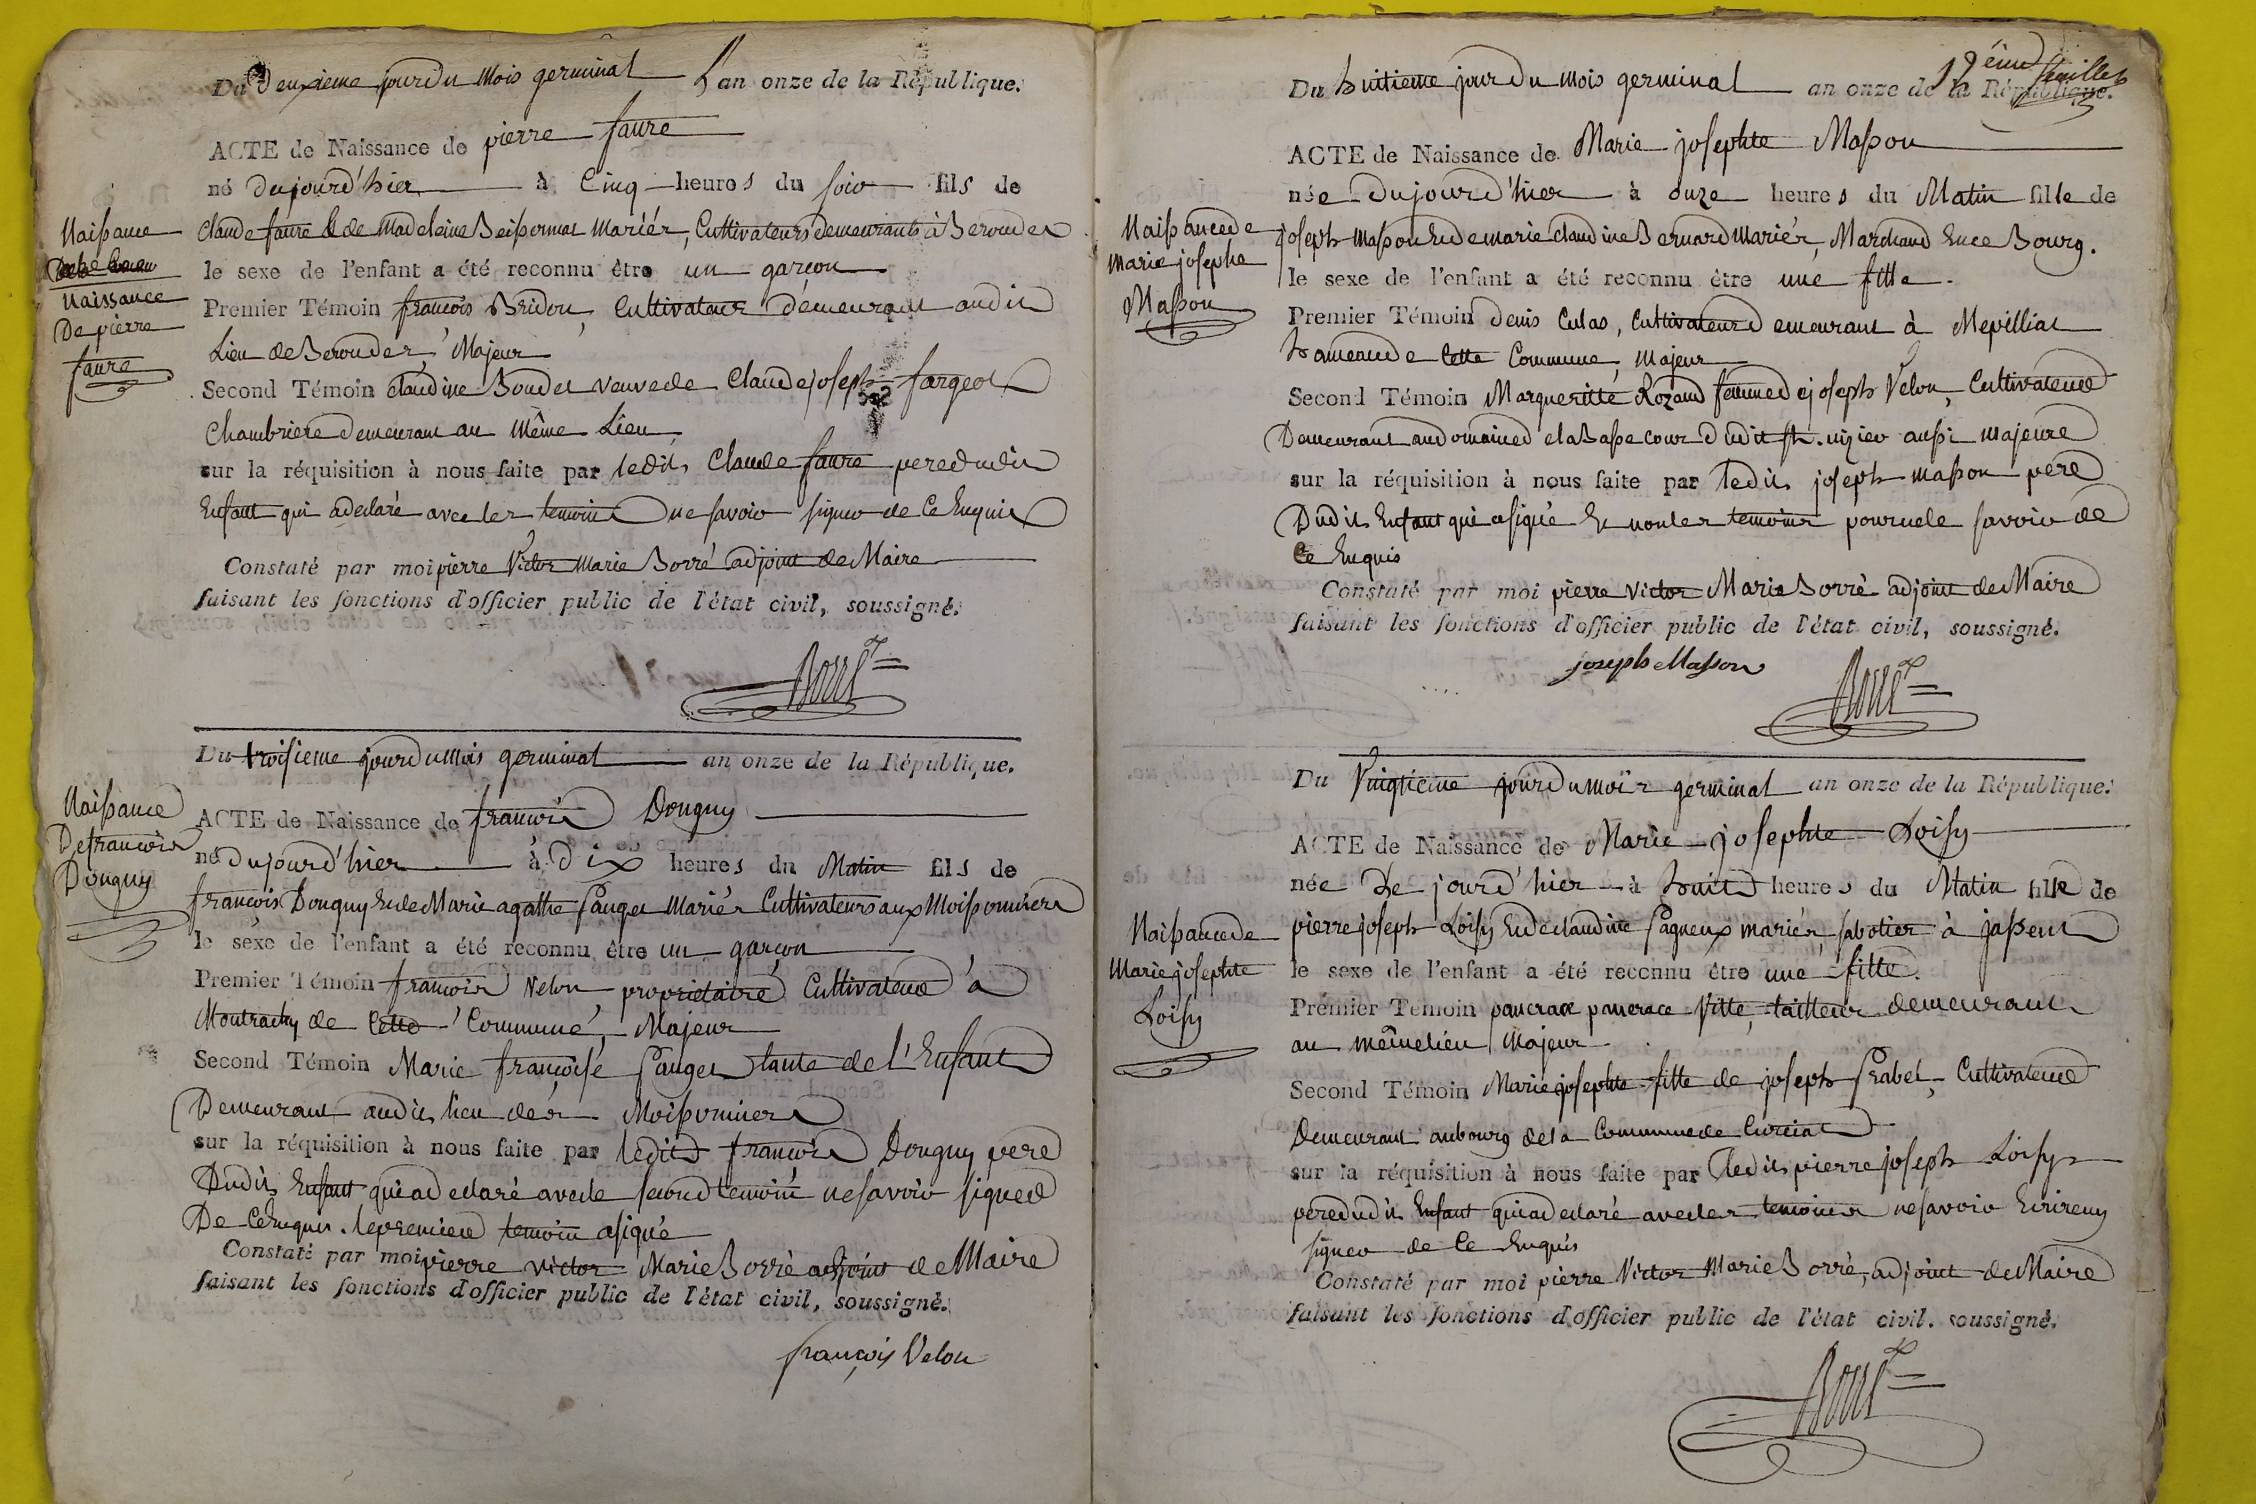 Du Deuxieme jour du mois germinal L'an onze de la République.
ACTE de Naissance de pierre faure
né Dujourd'hier à Cinq heures du soir fils de
Claude faure & de Madeleine Beissonnat Mariés, Cultivateurs demeurants à Berouder
le sexe de l'enfant a été reconnu être un garçon
Premier Témoin françois Bridon, Cultivateur Demeurant audit
Lieu de Berouder, Majeur
Second Témoin Claudine Boudet veuve de Claude joseph fargeot
Chambriere demeurant au Même Lieu,
sur la réquisition à nous faite par ledit Claude faure pere dudit
Enfant qui a declaré avec les temoins ne savoir signer de Ce Enquis
Constaté par moi pierre Victor Marie Borré adjoint de Maire
faisant les fonctions d'officier public de l'état civil, soussigné.
Naissance
naissance
De pierre
faure
Borré
Du troisieme jour du mois germinal an onze de la République.
ACTE de Naissance de françois Donguy
né Dujourd'hier à Dix heures du Matin fils de
françois Donguy Et de Marie agathe Pauget Mariés Cultivateurs aux Moissonniers
le sexe de l'enfant a été reconnu être un garçon
Premier Témoin françois Velon, propriétaire Cultivateur à
Montrachy de Cette Commune, Majeur
Second Témoin Marie françoise Pauget tante de L'Enfant
Demeurant audit lieu des Moissonniers
sur la réquisition à nous faite par ledit françois Donguy pere
Dudit Enfant qui a declaré avec le second temoin ne savoir signer
De Ce Enquis. le premier temoin a signé
Constaté par moi pierre victor Marie Borré adjoint de Maire
faisant les fonctions d'officier public de l'état civil, soussigné.
Naissance
De françois
Donguy
françois Velon
12ème feuillet
Du huitieme jour du mois germinal an onze de la République.
ACTE de Naissance de Marie josephte Masson
née Dujourd'hier à onze heures du Matin fille de
joseph Masson Et de marie claudine Bernard Mariés, Marchand En ce Bourg.
le sexe de l'enfant a été reconnu être une fille.
Premier Témoin Denis Culas, Cultivateur Demeurant à Mepilliat
hameau de Cette Commune, Majeur
Second Témoin Margueritte Rozand femme de joseph Velon, Cultivateur
Demeurant au domaine de la Basse cour dudit St. nizier aussi majeure
sur la réquisition à nous faite par ledit joseph Masson père
Dudit Enfant qui a signé Et non les temoins pour ne le savoir de
Ce Enquis
Constaté par moi pierre victor Marie Borré adjoint de Maire
faisant les fonctions d'officier public de l'état civil, soussigné.
Naissance de
marie josephe
Masson
joseph Masson
Borré
Du Vingtieme jour du moïs germinal an onze de la République.
ACTE de Naissance de Marie josephte Loisy
née De jourd'hier à huit heures du Matin fille de
pierre joseph Loisy Et de claudine Pagneux mariés, sabotier à jassent
le sexe de l'enfant a été reconnu être une fille.
Premier Témoin pancrace pancrace Vitte, tailleur demeurant
au même lieu Majeur
Second Témoin Marie josephte fille de joseph Prabel, Cultivateur
Demeurant au bourg de la Commune de Curciat
sur la réquisition à nous faite par ledit pierre joseph Loisy
pere dudit Enfant qui a declaré avec les temoins ne savoir Ecrire ny
signer de Ce Enquis
Constaté par moi pierre Victor Marie Borré, adjoint de Maire
faisant les fonctions d'officier public de l'état civil, soussigné.
Naissance de
Marie josephte
Loisy
Borré